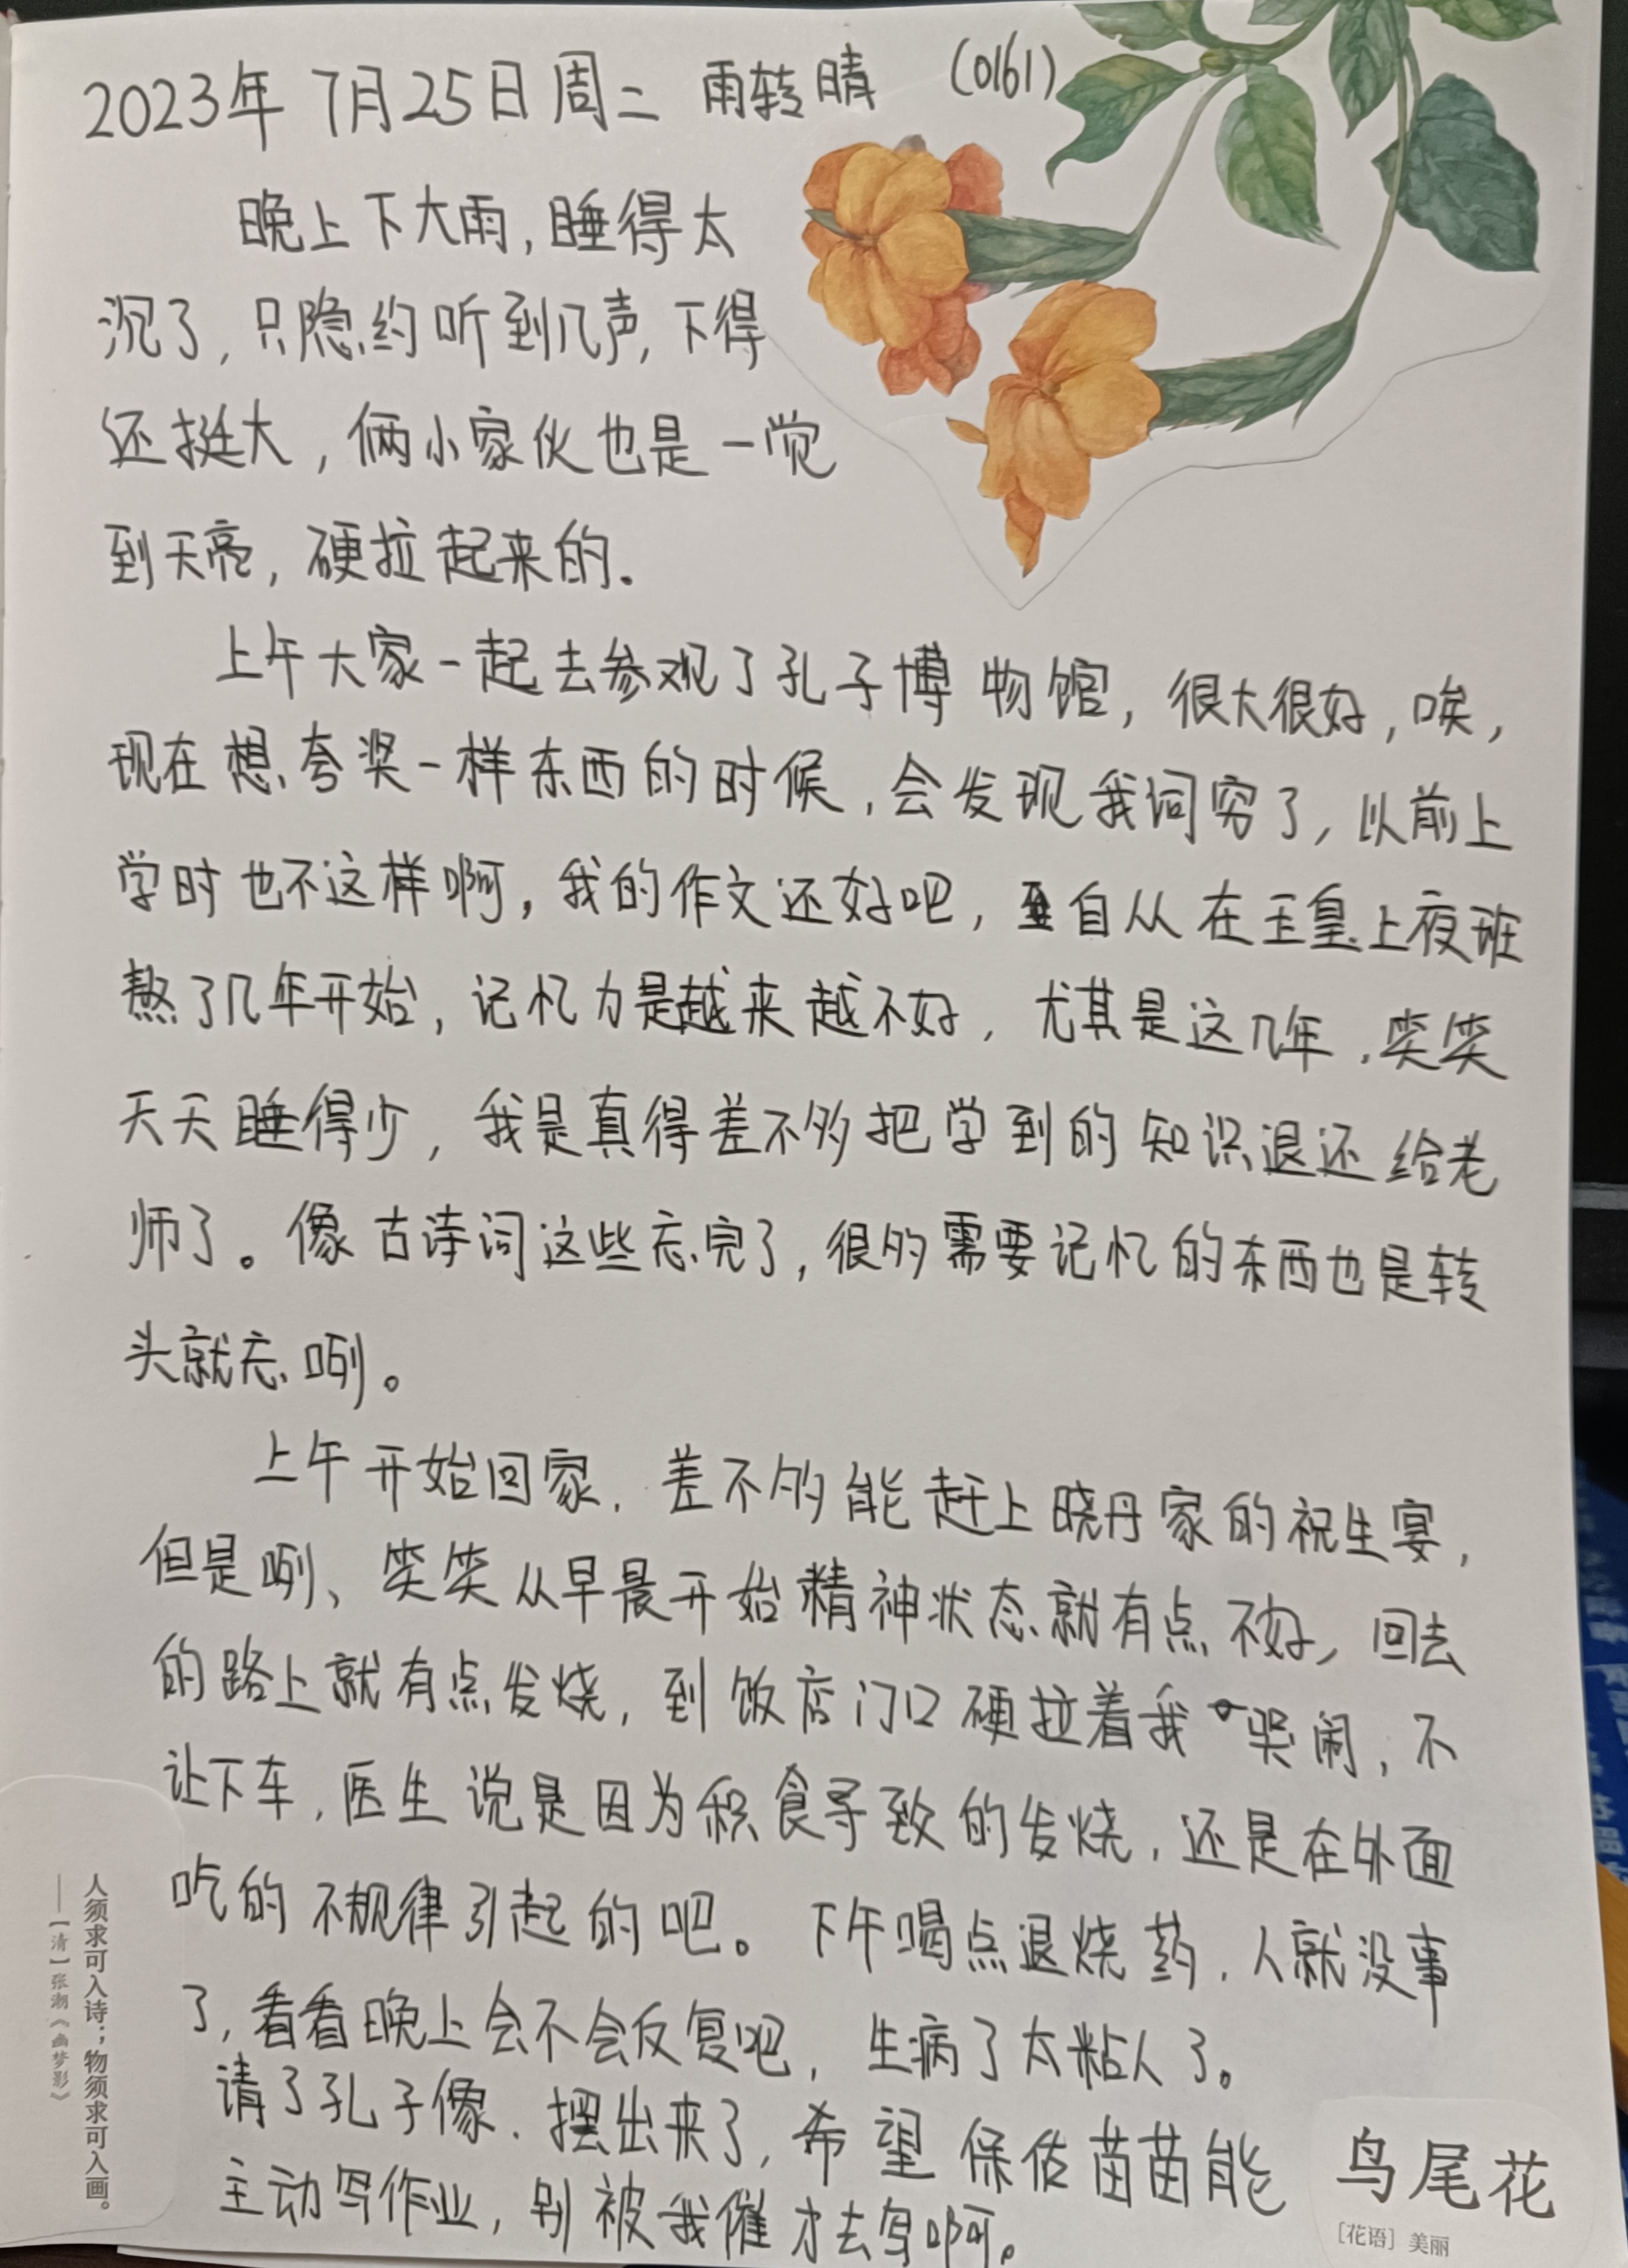 2023年 7月25日 周二 雨转晴 (0161)
晚上下大雨,睡得太
沉了,只隐约听到几声,下得
还挺大,俩小家伙也是一觉
到天亮,硬拉起来的.
上午大家一起去参观了孔子博物馆,很大很好,唉,
现在想夸奖一样东西的时候,会发现我词穷了,以前上
学时也不这样啊,我的作文还好吧,自从在玉皇上夜班
熬了几年开始,记忆力是越来越不好,尤其是这几年,笑笑
天天睡得少,我是真得差不多把学到的知识退还给老
师了。像古诗词这些忘完了,很多需要记忆的东西也是转
头就忘咧。
上午开始回家,差不多能赶上晓丹家的祝生宴,
但是咧、笑笑从早晨开始精神状态就有点不好,回去
的路上就有点发烧,到饭店门口硬拉着我哭闹,不
让下车,医生说是因为积食导致的发烧,还是在外面
吃的不规律引起的吧。下午喝点退烧药,人就没事
了,看看晚上会不会反复吧,生病了太粘人了。
请了孔子像.摆出来了,希望保佑苗苗能
主动写作业,别被我催才去写啊。
人须求可入诗;物须求可入画。
——[清]张潮《幽梦影》
鸟尾花
[花语]美丽